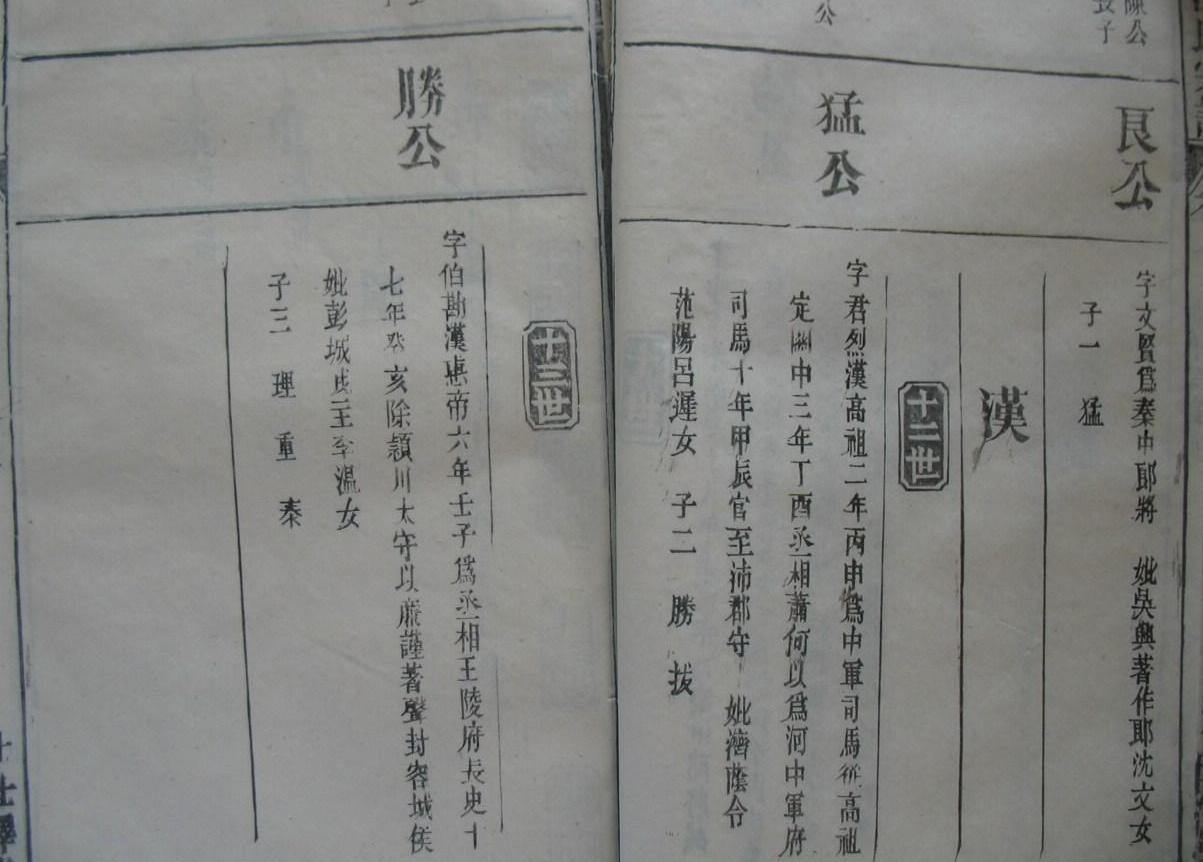 艮公
字文賢爲秦中郎將　妣吳興著作郎沈文女
子一　猛
漢
十二世
猛公
字君烈漢高祖二年丙申爲中軍司馬從高祖
定關中三年丁酉丞相蕭何以爲河中軍府
司馬十年甲辰官至沛郡守　妣濟蔭令
范陽呂遲女　子二　勝　拔
十三世
勝公
字伯勘漢惠帝六年壬子爲丞相王陵府長史十
七年癸亥除潁川太守以嚴謹著聲封容城侯
妣彭城内史李溫女
子三　理　重　泰